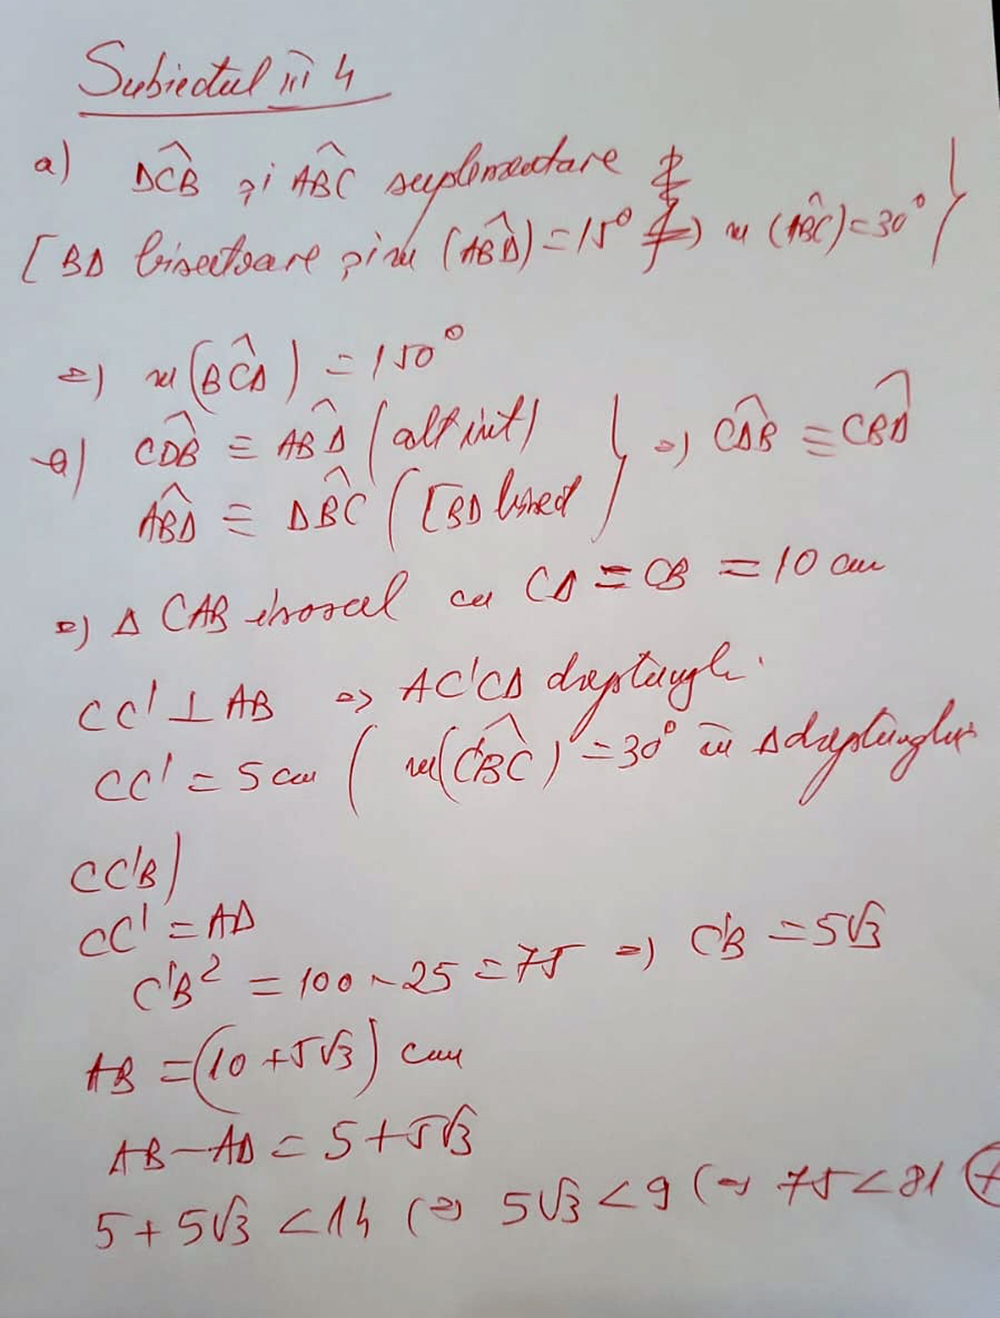 Subiectul III 4
a) DCB și ABC suplementare
[BD bisectoare și m (ABD) = 15° ⇒ m (ABC) = 30° }
⇒ m(BCD) = 150°
a) CDB ≡ ABD (alt int) } ⇒ CDB ≡ CBD
ABD ≡ DBC ([BD bisect)
⇒ Δ CAB isoscel cu CD = CB = 10 cm
CC' ⊥ AB ⇒ AC'CD dreptungh.
CC' = 5 cm ( m(C'BC) = 30° în Δ dreptunghic
CC'B)
CC' = AD
C'B² = 100 - 25 = 75 ⇒ C'B = 5√3
AB = (10 + 5√3) cm
AB - AD = 5 + 5√3
5 + 5√3 < 14 (⇒ 5√3 < 9 (⇒ 75 < 81